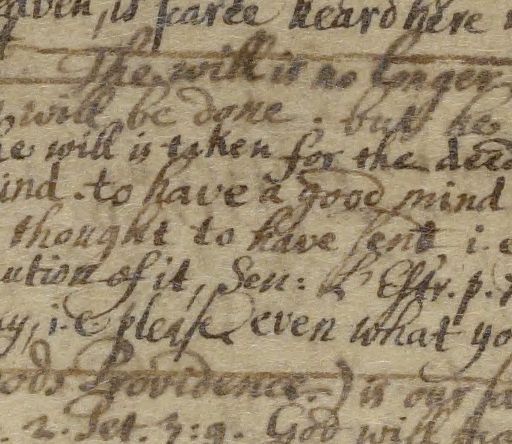 eaven, is scarce heard here
The will is no longer
will be done. but he
he will is taken for the deed
ind. to have a good mind
thought to have sent i.e
ution of it, Sen: L' Estr. p.
y, i.e please even what yo
ods Providence.) is our
2. Pet. 3:9. God will